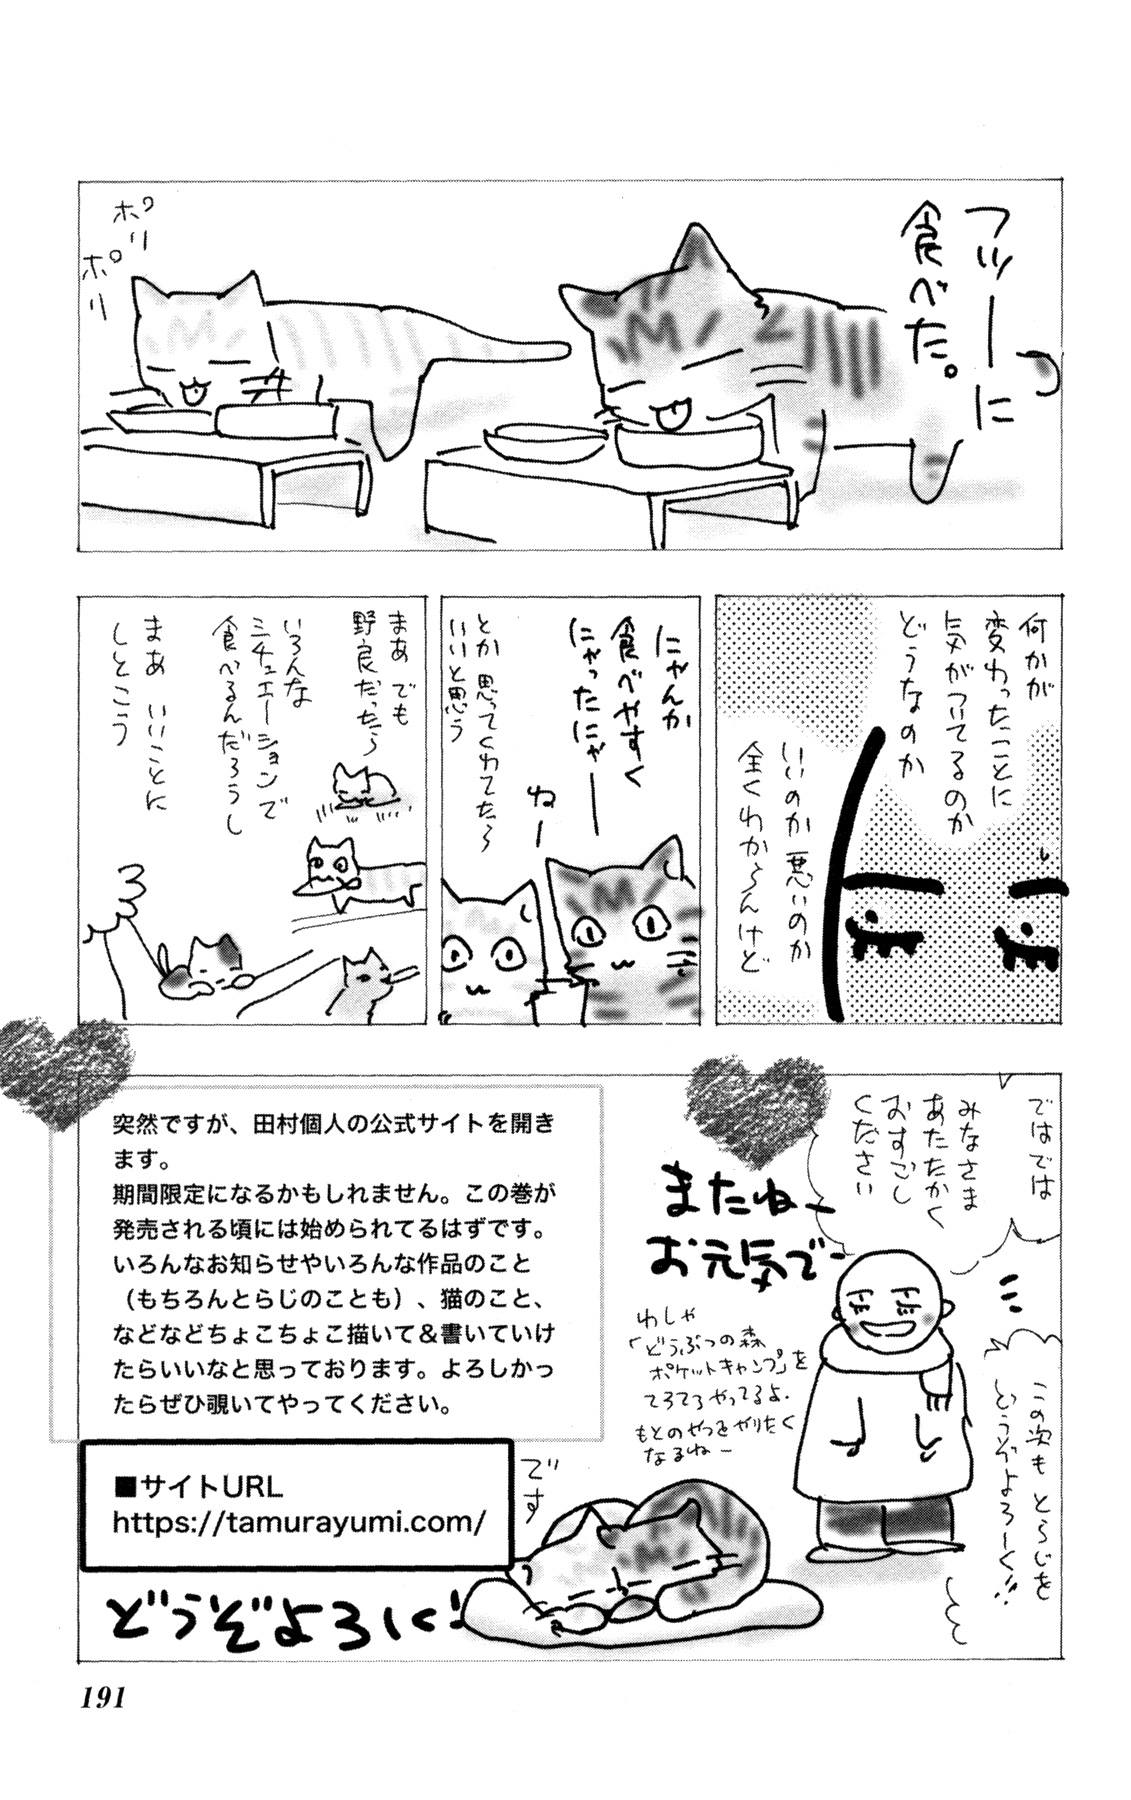 フツーに
食べた。
ポリ
ポリ
何かが
変わったことに
気がついてるのか
どうなのか
いいのか 悪いのか
全くわからんけど
にゃんか
食べやすく
にゃったにゃー
ねー
とか 思ってくれてたら
いいと思う
まあ でも
野良だったら
いろんな
シチュエーションで
食べるんだろうし
まあ いいことに
しとこう
ではでは
みなさま
あたたかく
おすごし
ください
またねー
お元気でー
この次も とらじを
どうぞよろしく!!
わしゃ
「どうぶつの森
ポケットキャンプ」を
てろてろやってるよ.
もとのやつをやりたく
なるねー
突然ですが、田村個人の公式サイトを開き
ます。
期間限定になるかもしれません。この巻が
発売される頃には始められてるはずです。
いろんなお知らせやいろんな作品のこと
（もちろんとらじのことも）、猫のこと、
などなどちょこちょこ描いて＆書いていけ
たらいいなと思っております。よろしかっ
たらぜひ覗いてやってください。
■サイトURL
https://tamurayumi.com/
です
どうぞよろしく!
191